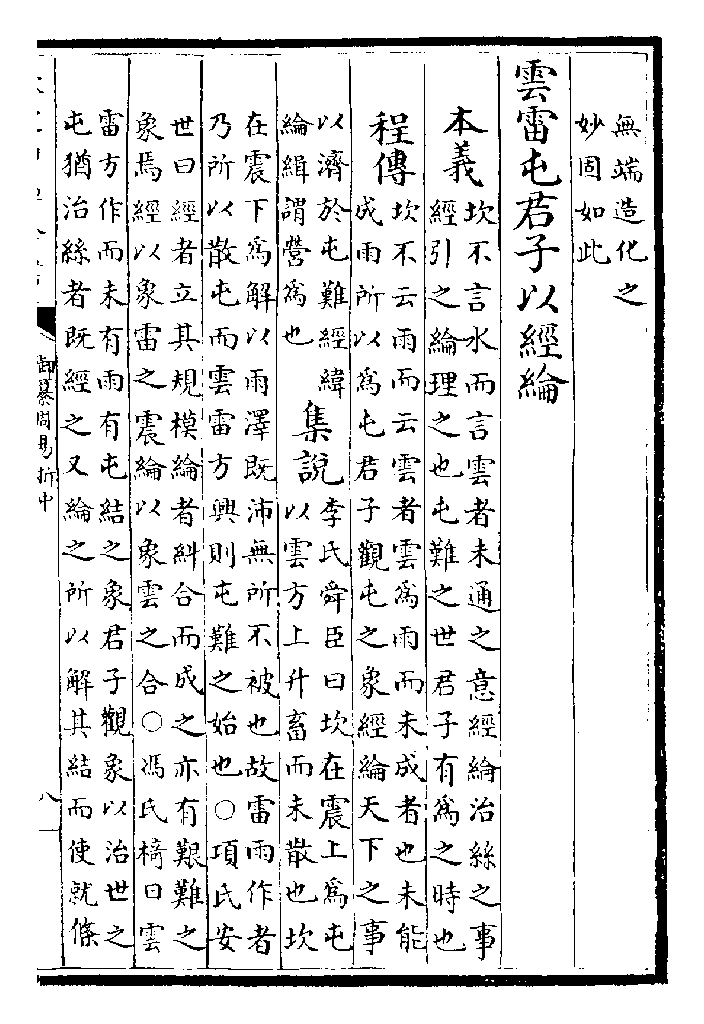 無端造化之
妙固如此
雲雷屯君子以經綸
本義
坎不言水而言雲者未通之意經綸治絲之事
經引之綸理之也屯難之世君子有為之時也
程傳
坎不云雨而云雲者雲為雨而未成者也未能
成雨所以為屯君子觀屯之象經綸天下之事
以濟於屯難經緯
綸緝謂營為也
集說
李氏舜臣曰坎在震上為屯
以雲方上升畜而未散也坎
在震下為解以雨澤既沛無所不被也故雷雨作者
乃所以散屯而雲雷方興則屯難之始也○項氏安
世曰經者立其規模綸者糾合而成之亦有艱難之
象焉經以象雷之震綸以象雲之合○馮氏椅曰雲
雷方作而未有雨有屯結之象君子觀象以治世之
屯猶治絲者既經之又綸之所以解其結而使就條
御纂周易折中